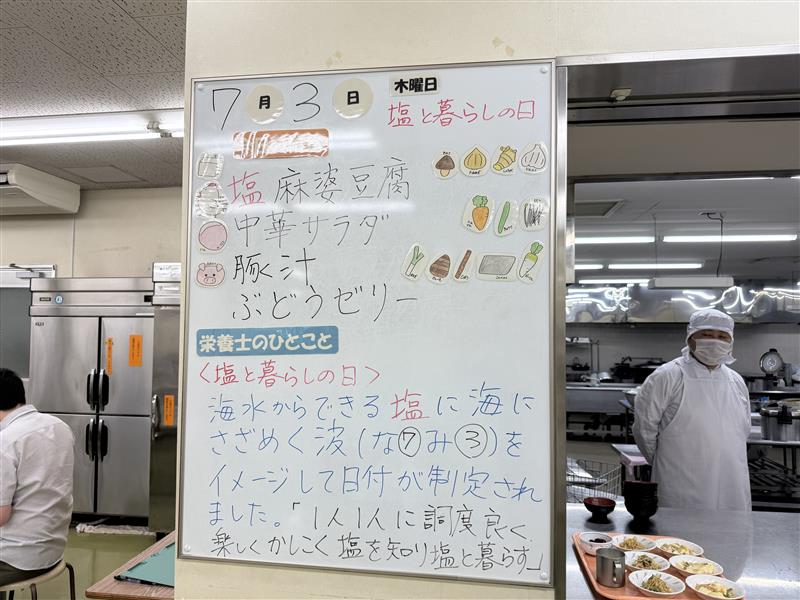 7月3日 木曜日
塩と暮らしの日
塩麻婆豆腐
中華サラダ
豚汁
ぶどうゼリー
栄養士のひとこと
<塩と暮らしの日>
海水からできる塩に海に
さざめく波(な⑦み③)を
イメージして日付が制定され
ました。「1人1人に調度良く、
楽しくかしこく塩を知り塩と暮らす」